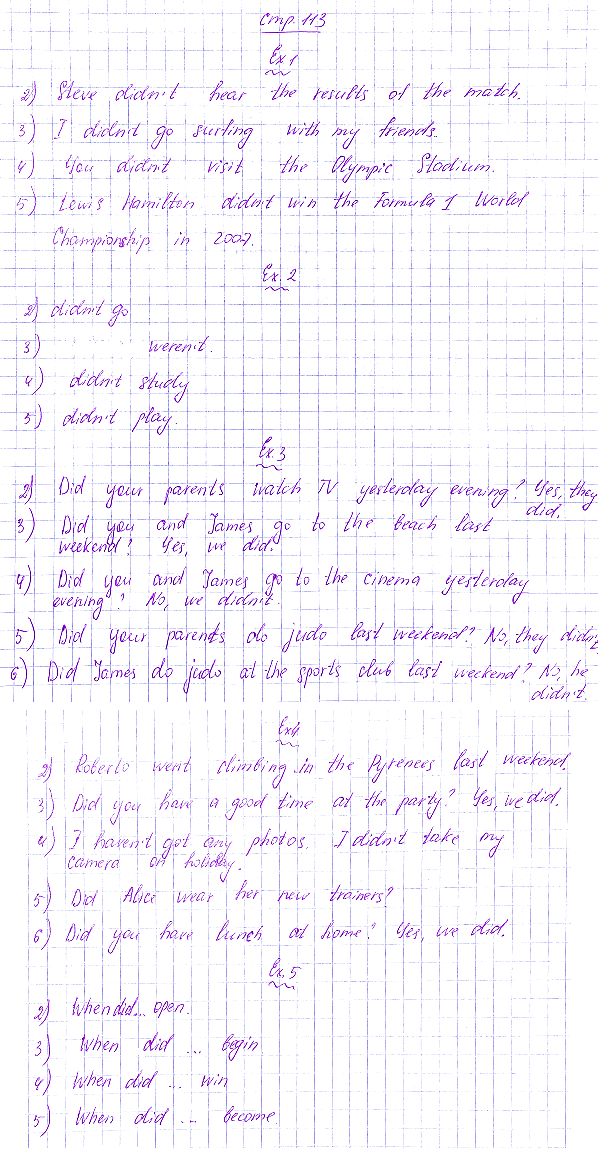 стр 113
Ex 1
2) Steve didn't hear the results of the match.
3) I didn't go surfing with my friends.
4) You didn't visit the Olympic Stadium.
5) Lewis Hamilton didn't win the Formula 1 World
Championship in 2007.
Ex. 2
2) didn't go
3) weren't.
4) didn't study
5) didn't play.
Ex.3
2) Did your parents watch TV yesterday evening? Yes, they
did.
3) Did you and James go to the beach last
weekend? Yes, we did.
4) Did you and James go to the cinema yesterday
evening? No, we didn't.
5) Did your parents do judo last weekend? No, they didn't
6) Did James do judo at the sports club last weekend? No, he
didn't.
Ex4
2) Roberto went climbing in the Pyrenees last weekend.
3) Did you have a good time at the party? Yes, we did.
4) I haven't got any photos. I didn't take my
camera on holiday.
5) Did Alice wear her new trainers?
6) Did you have lunch at home? Yes, we did.
Ex. 5
2) When did... open.
3) When did ... begin
4) When did ... win
5) When did ... become.